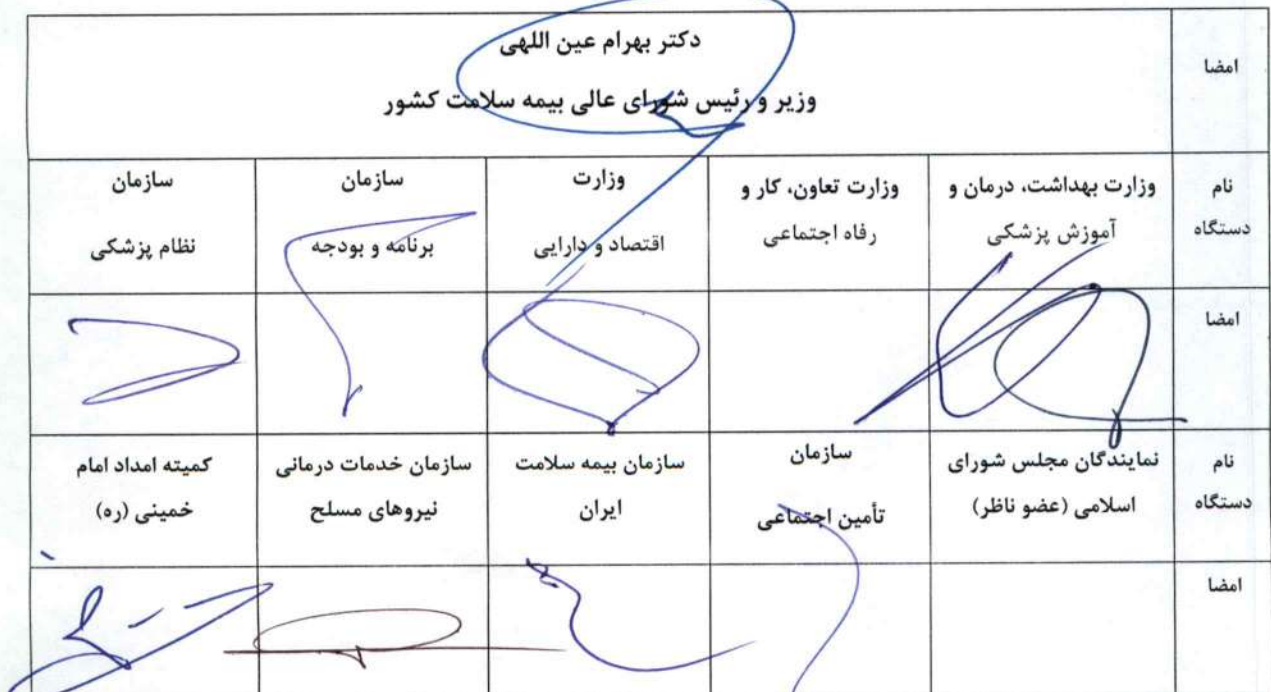 امضا
دکتر بهرام عین اللهی
وزیر و رئیس شورای عالی بیمه سلامت کشور
نام
دستگاه
وزارت بهداشت، درمان و
آموزش پزشکی
وزارت تعاون، کار و
رفاه اجتماعی
وزارت
اقتصاد و دارایی
سازمان
برنامه و بودجه
سازمان
نظام پزشکی
امضا
نام
دستگاه
نمایندگان مجلس شورای
اسلامی (عضو ناظر)
سازمان
تأمین اجتماعی
سازمان بیمه سلامت
ایران
سازمان خدمات درمانی
نیروهای مسلح
کمیته امداد امام
خمینی (ره)
امضا